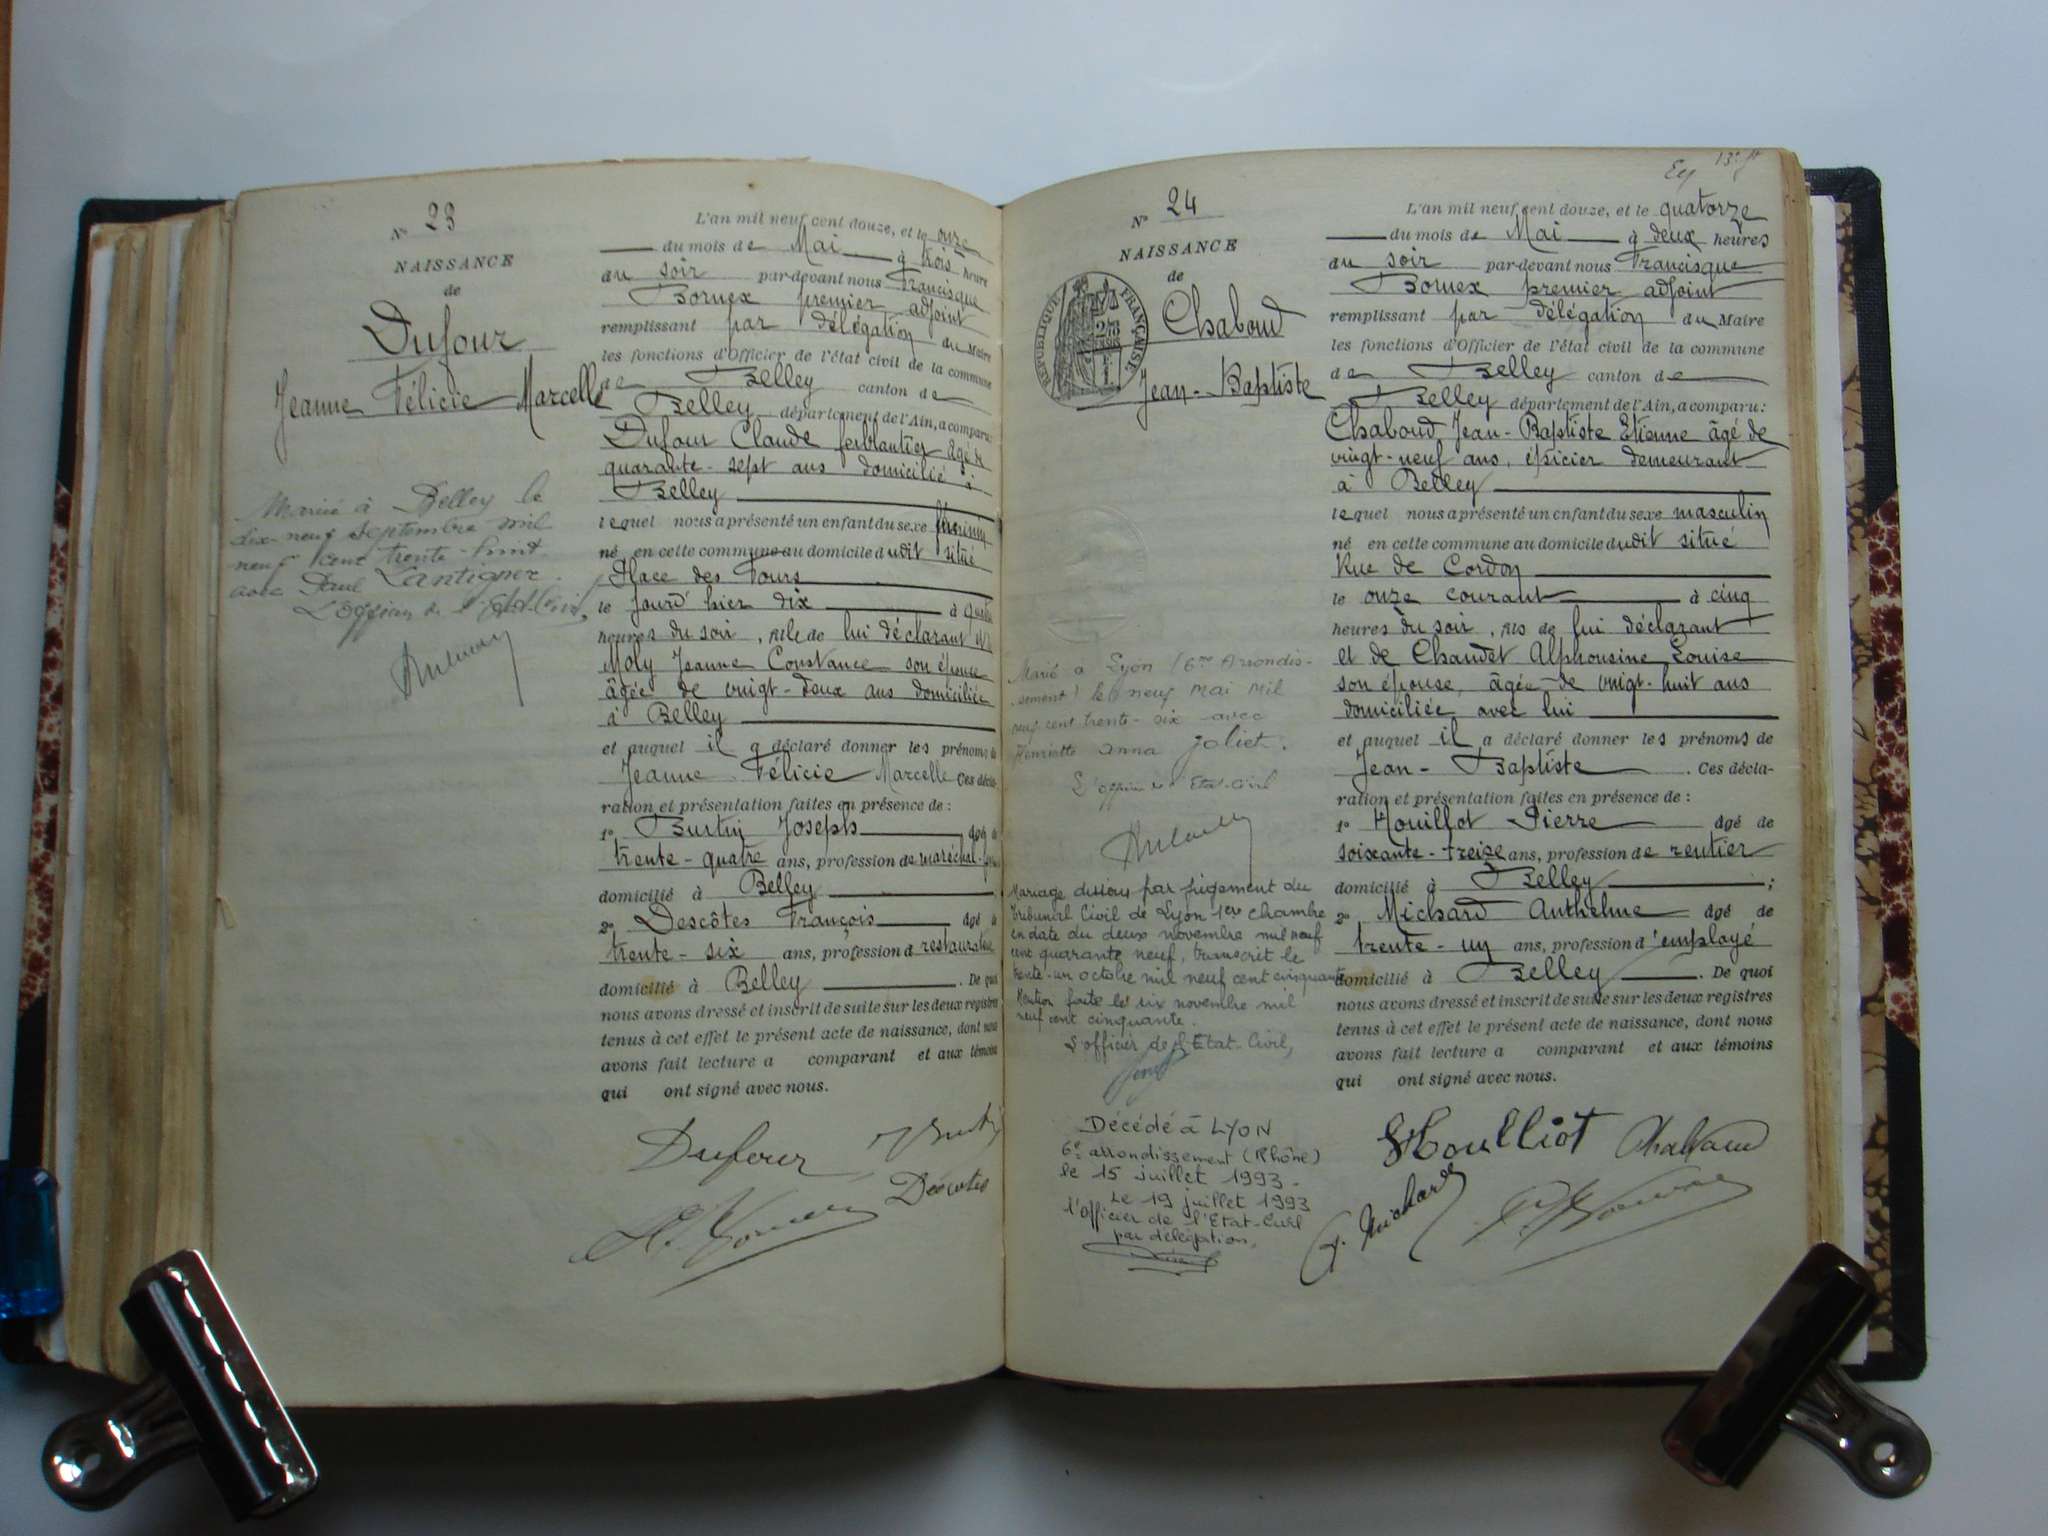 N° 23
NAISSANCE
de
Dufour
Jeanne Félicie Marcelle
Mariée à Belley le
dix-neuf septembre mil
neuf cent trente-huit
avec Paul Lantigner.
L'Officier de l'Etat Civil,
L'an mil neuf cent douze, et le onze
du mois de Mai à trois heure
du soir par-devant nous Francisque
Bornex premier adjoint
remplissant par délégation du Maire
les fonctions d'Officier de l'état civil de la commune
de Belley canton de
Belley département de l'Ain, a comparu:
Dufour Claude ferblantier âgé de
quarante-sept ans domicilié à
Belley
lequel nous a présenté un enfant du sexe féminin
né en cette commune au domicile dudit situé
Place des Fours
le jourd'hier dix à quatre
heures du soir, fille de lui déclarant et de
Moly Jeanne Constance son épouse
âgée de vingt-deux ans domiciliée
à Belley
et auquel il a déclaré donner les prénoms de
Jeanne Félicie Marcelle Ces décla-
ration et présentation faites en présence de :
1° Burtin Joseph âgé de
trente-quatre ans, profession de maréchal-
domicilié à Belley
2° Descôtes François âgé de
trente-six ans, profession de restaurateur
domicilié à Belley. De quoi
nous avons dressé et inscrit de suite sur les deux registres
tenus à cet effet le présent acte de naissance, dont nous
avons fait lecture a comparant et aux témoins
qui ont signé avec nous.
Dufour J Burtin
Descotes
F. Bornex
Ey 13e ft
N° 24
NAISSANCE
de
RÉPUBLIQUE FRANÇAISE
Chaboud
Jean-Baptiste
Marié à Lyon (6me Arrondis-
sement) le neuf Mai mil
neuf cent trente-six avec
Henriette Anna Joliet.
L'officier de l'Etat-Civil
Mariage dissous par jugement du
Tribunal Civil de Lyon 1ère chambre
en date du deux novembre mil neuf
cent quarante neuf, transcrit le
trente-un octobre mil neuf cent cinquante
Mention faite le six novembre mil
neuf cent cinquante.
L'officier de l'Etat-Civil,
Décédé à LYON
6e arrondissement (Rhône)
le 15 juillet 1993.
Le 19 juillet 1993
l'Officier de l'Etat-Civil
par délégation,
L'an mil neuf cent douze, et le quatorze
du mois de Mai à deux heures
du soir par-devant nous Francisque
Bornex premier adjoint
remplissant par délégation du Maire
les fonctions d'Officier de l'état civil de la commune
de Belley canton de
Belley département de l'Ain, a comparu:
Chaboud Jean-Baptiste Etienne âgé de
vingt-neuf ans, épicier demeurant
à Belley
lequel nous a présenté un enfant du sexe masculin
né en cette commune au domicile dudit situé
Rue de Cordon
le onze courant à cinq
heures du soir, fils de lui déclarant
et de Chaudet Alphonsine Louise
son épouse, âgée de vingt-huit ans
domiciliée avec lui
et auquel il a déclaré donner les prénoms de
Jean-Baptiste. Ces décla-
ration et présentation faites en présence de :
1° Houillot Pierre âgé de
soixante-treize ans, profession de rentier
domicilié à Belley;
2° Michard Anthelme âgé de
trente-un ans, profession d'employé
domicilié à Belley. De quoi
nous avons dressé et inscrit de suite sur les deux registres
tenus à cet effet le présent acte de naissance, dont nous
avons fait lecture a comparant et aux témoins
qui ont signé avec nous.
Houlliot Chaboud
Michard F. Bornex